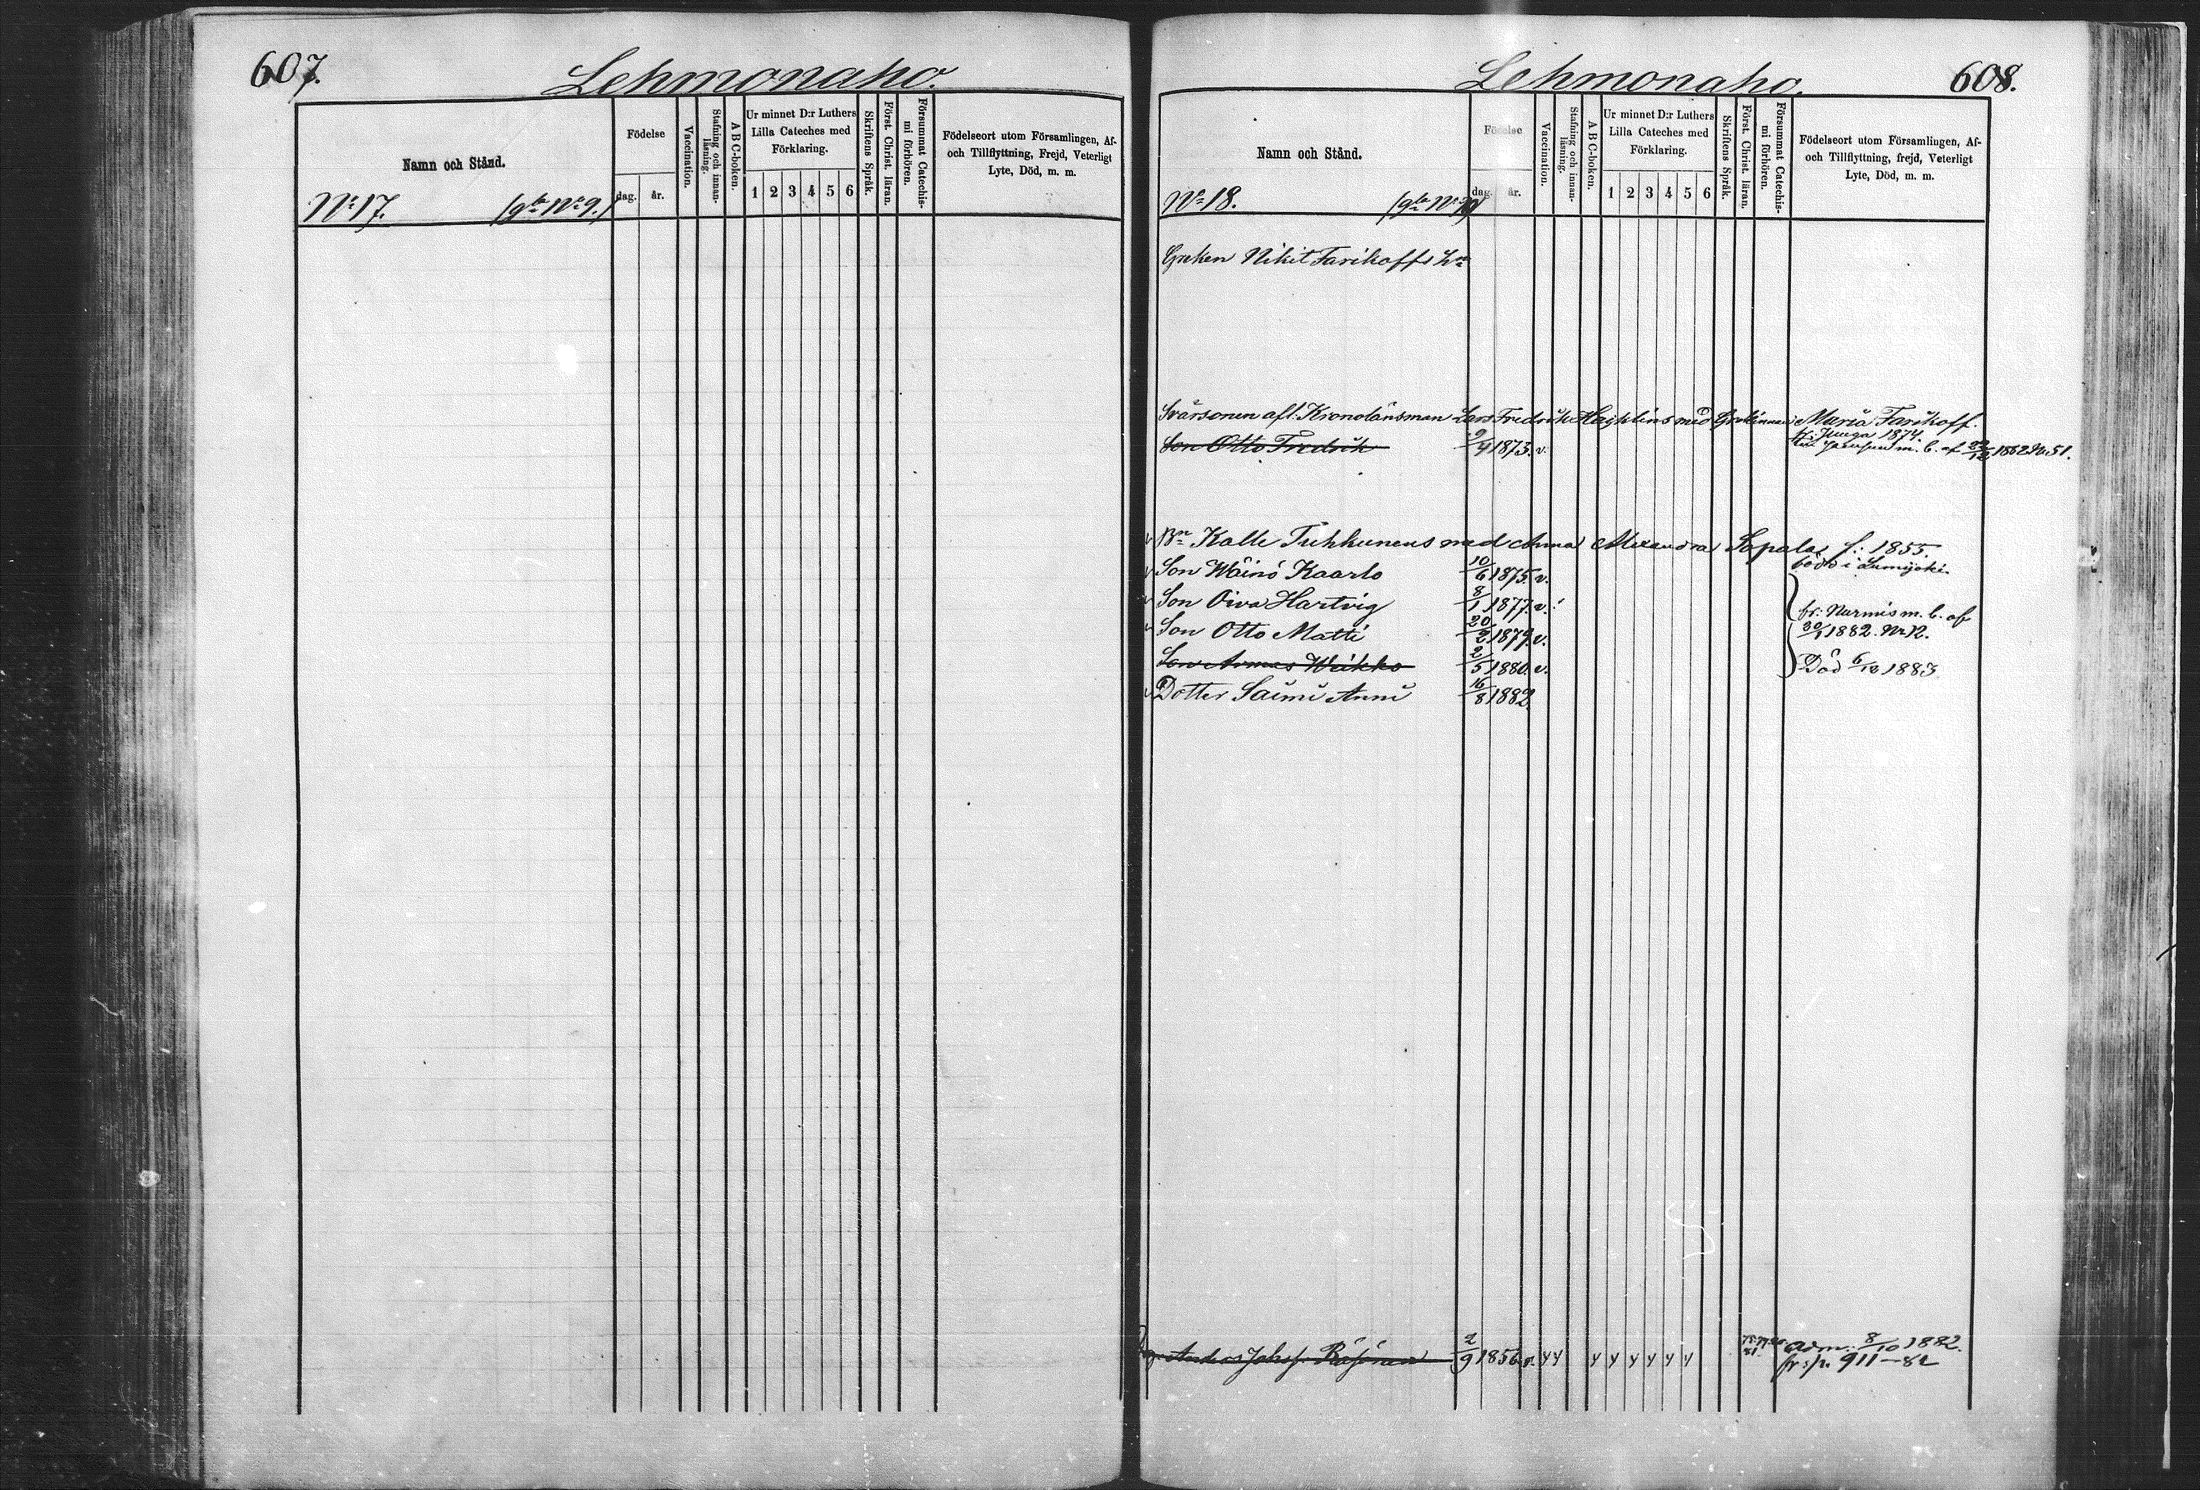 607.
Lehmonaho.
Namn och Stånd.
Födelse
dag.
år.
Vaccination.
Stafning och innan-
läsning.
A B C-boken.
Ur minnet D:r Luthers
Lilla Cateches med
Förklaring.
1 2 3 4 5 6
Skriftens Språk.
Först. Christ. läran.
Försummat Catechis-
mi förhören.
Födelseort utom Församlingen, Af-
och Tillflyttning, Frejd, Veterligt
Lyte, Död, m. m.
No 17.
Lehmonaho.
608.
Namn och Stånd.
Födelse
dag.
år.
Vaccination.
Stafning och innan-
läsning.
A B C-boken.
Ur minnet D:r Luthers
Lilla Cateches med
Förklaring.
1 2 3 4 5 6
Skriftens Språk.
Först. Christ. läran.
Försummat Catechis-
mi förhören.
Födelseort utom Församlingen, Af-
och Tillflyttning, frejd, Veterligt
Lyte, Död, m. m.
No 18.
Greken Nikit Farikoffs
Svärsonen afl. Kronolänsman Lars Fredrik med Grekinnan Maria Farikoff.
Son Otto Fredrik 9/4 1873. v. 1874.
m. b. af 22/12 1862 No 51.
v Bn Kalle Tuhkunens med Anna Alexandra Sapala f: 1855.
v Son Wäinö Kaarlo 10/6 1875. v. född i Lumijoki.
v Son Oiva Hartvig 8/1 1877. v. fr: Nurmis m. b. af
v Son Otto Matti 20/2 1879. v. 30/1 1882. Nr 12.
Son Armas Weikko 2/5 1880. v. Död 6/10 1883.
v Dotter Saimi Anni 16/8 1882.
Anders Johs. Räsänen 2/9 1856. v. y y y y y y y y adm. 8/10 1882.
fr. p. 911-82